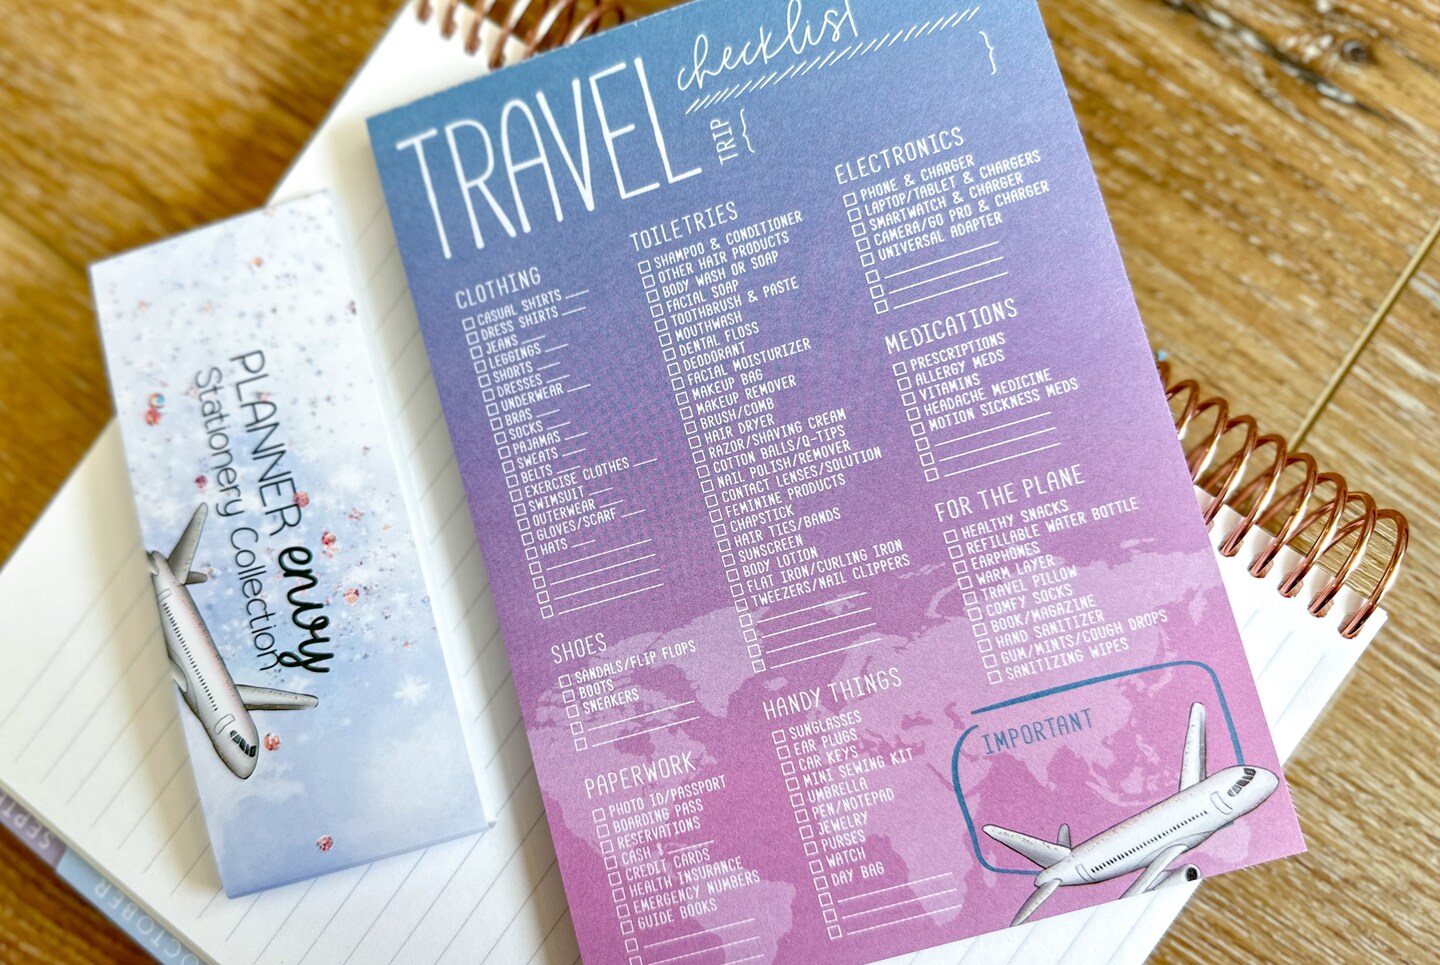 TRAVEL checklist
TRIP { }
CLOTHING
CASUAL SHIRTS
DRESS SHIRTS
JEANS
LEGGINGS
SHORTS
DRESSES
UNDERWEAR
BRAS
SOCKS
PAJAMAS
SWEATS
BELTS
EXERCISE CLOTHES
SWIMSUIT
OUTERWEAR
GLOVES/SCARF
HATS
SHOES
SANDALS/FLIP FLOPS
BOOTS
SNEAKERS
PAPERWORK
PHOTO ID/PASSPORT
BOARDING PASS
RESERVATIONS
CASH $
CREDIT CARDS
HEALTH INSURANCE
EMERGENCY NUMBERS
GUIDE BOOKS
TOILETRIES
SHAMPOO & CONDITIONER
OTHER HAIR PRODUCTS
BODY WASH OR SOAP
FACIAL SOAP
TOOTHBRUSH & PASTE
MOUTHWASH
DENTAL FLOSS
DEODORANT
FACIAL MOISTURIZER
MAKEUP BAG
MAKEUP REMOVER
BRUSH/COMB
HAIR DRYER
RAZOR/SHAVING CREAM
COTTON BALLS/Q-TIPS
NAIL POLISH/REMOVER
CONTACT LENSES/SOLUTION
FEMININE PRODUCTS
CHAPSTICK
HAIR TIES/BANDS
SUNSCREEN
BODY LOTION
FLAT IRON/CURLING IRON
TWEEZERS/NAIL CLIPPERS
HANDY THINGS
SUNGLASSES
EAR PLUGS
CAR KEYS
MINI SEWING KIT
UMBRELLA
PEN/NOTEPAD
JEWELRY
PURSES
WATCH
DAY BAG
ELECTRONICS
PHONE & CHARGER
LAPTOP/TABLET & CHARGERS
SMARTWATCH & CHARGER
CAMERA/GO PRO & CHARGER
UNIVERSAL ADAPTER
MEDICATIONS
PRESCRIPTIONS
ALLERGY MEDS
VITAMINS
HEADACHE MEDICINE
MOTION SICKNESS MEDS
FOR THE PLANE
HEALTHY SNACKS
REFILLABLE WATER BOTTLE
EARPHONES
WARM LAYER
TRAVEL PILLOW
COMFY SOCKS
BOOK/MAGAZINE
HAND SANITIZER
GUM/MINTS/COUGH DROPS
SANITIZING WIPES
IMPORTANT
PLANNER envy
Stationery Collection
SEPT
OCTOBER